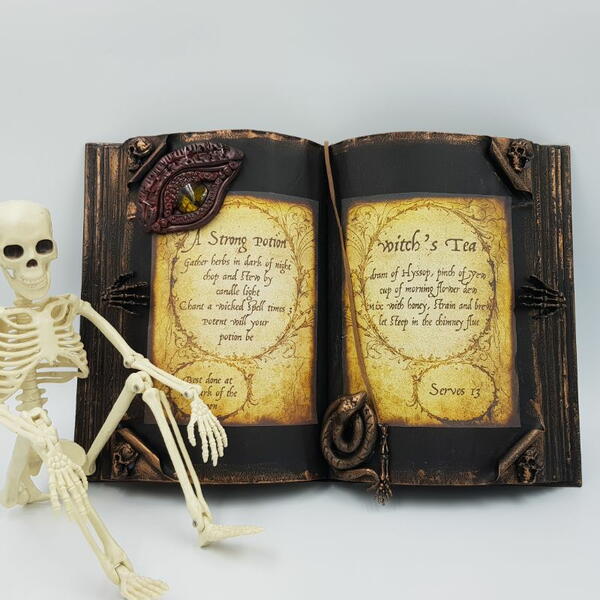 A Strong potion
Gather herbs in dark of night
chop and stew by
candle light
Chant a wicked spell times 3
Potent will your
potion be
Best done at
ark of the
Witch's Tea
dram of Hyssop, pinch of yew
cup of morning flower dew
mix with honey, strain and brew
let steep in the chimney flue
Serves 13